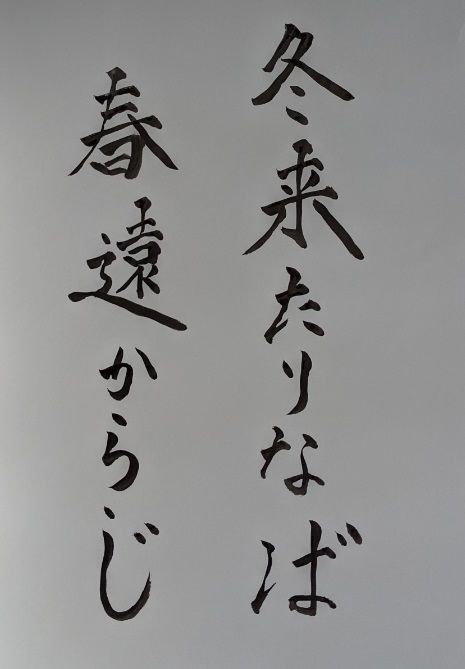 冬来たりなば
春遠からじ